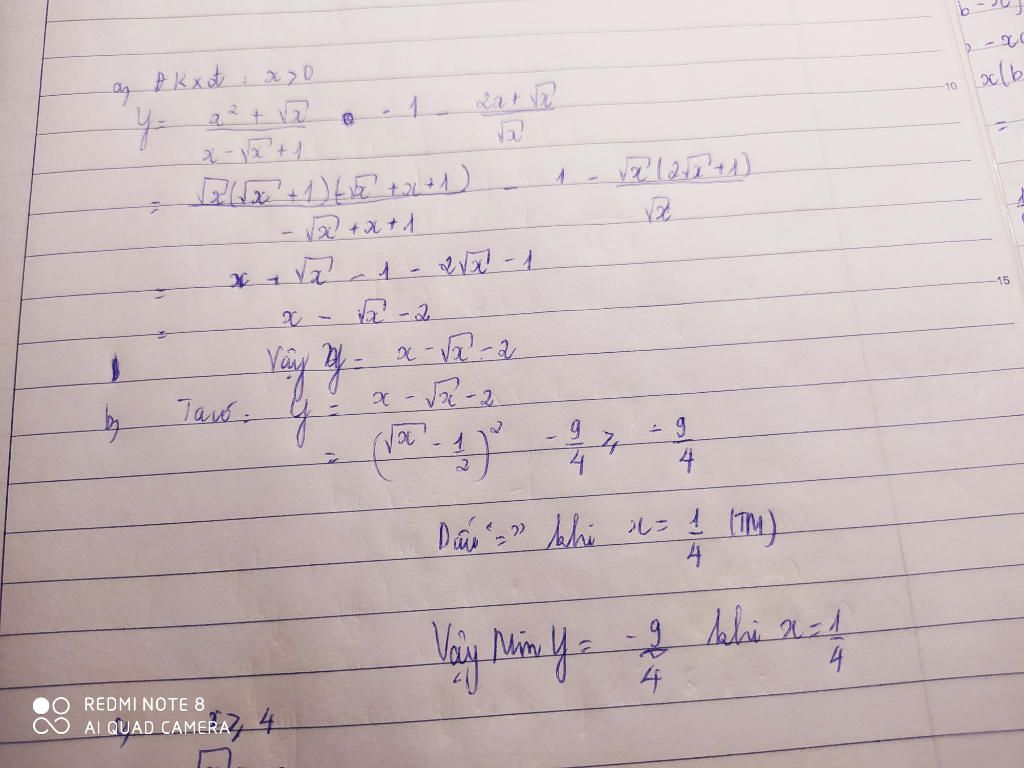 a, ĐKxđ : x > 0
Y = \frac{x² + √x}{x - √x + 1} - 1 - \frac{2x + √x}{√x}
= \frac{√x(√x + 1)(-√x + x + 1)}{-√x + x + 1} - 1 - \frac{√x(2√x + 1)}{√x}
= x + √x - 1 - 2√x - 1
= x - √x - 2
Vậy Y = x - √x - 2
b, Ta có: Y = x - √x - 2
= (√x - \frac{1}{2})² - \frac{9}{4} ≥ -\frac{9}{4}
Dấu "=" khi x = \frac{1}{4} (TM)
Vậy Min Y = -\frac{9}{4} khi x = \frac{1}{4}
≥ 4
REDMI NOTE 8
AI QUAD CAMERA
b - x
- x
x(b
=
10
15